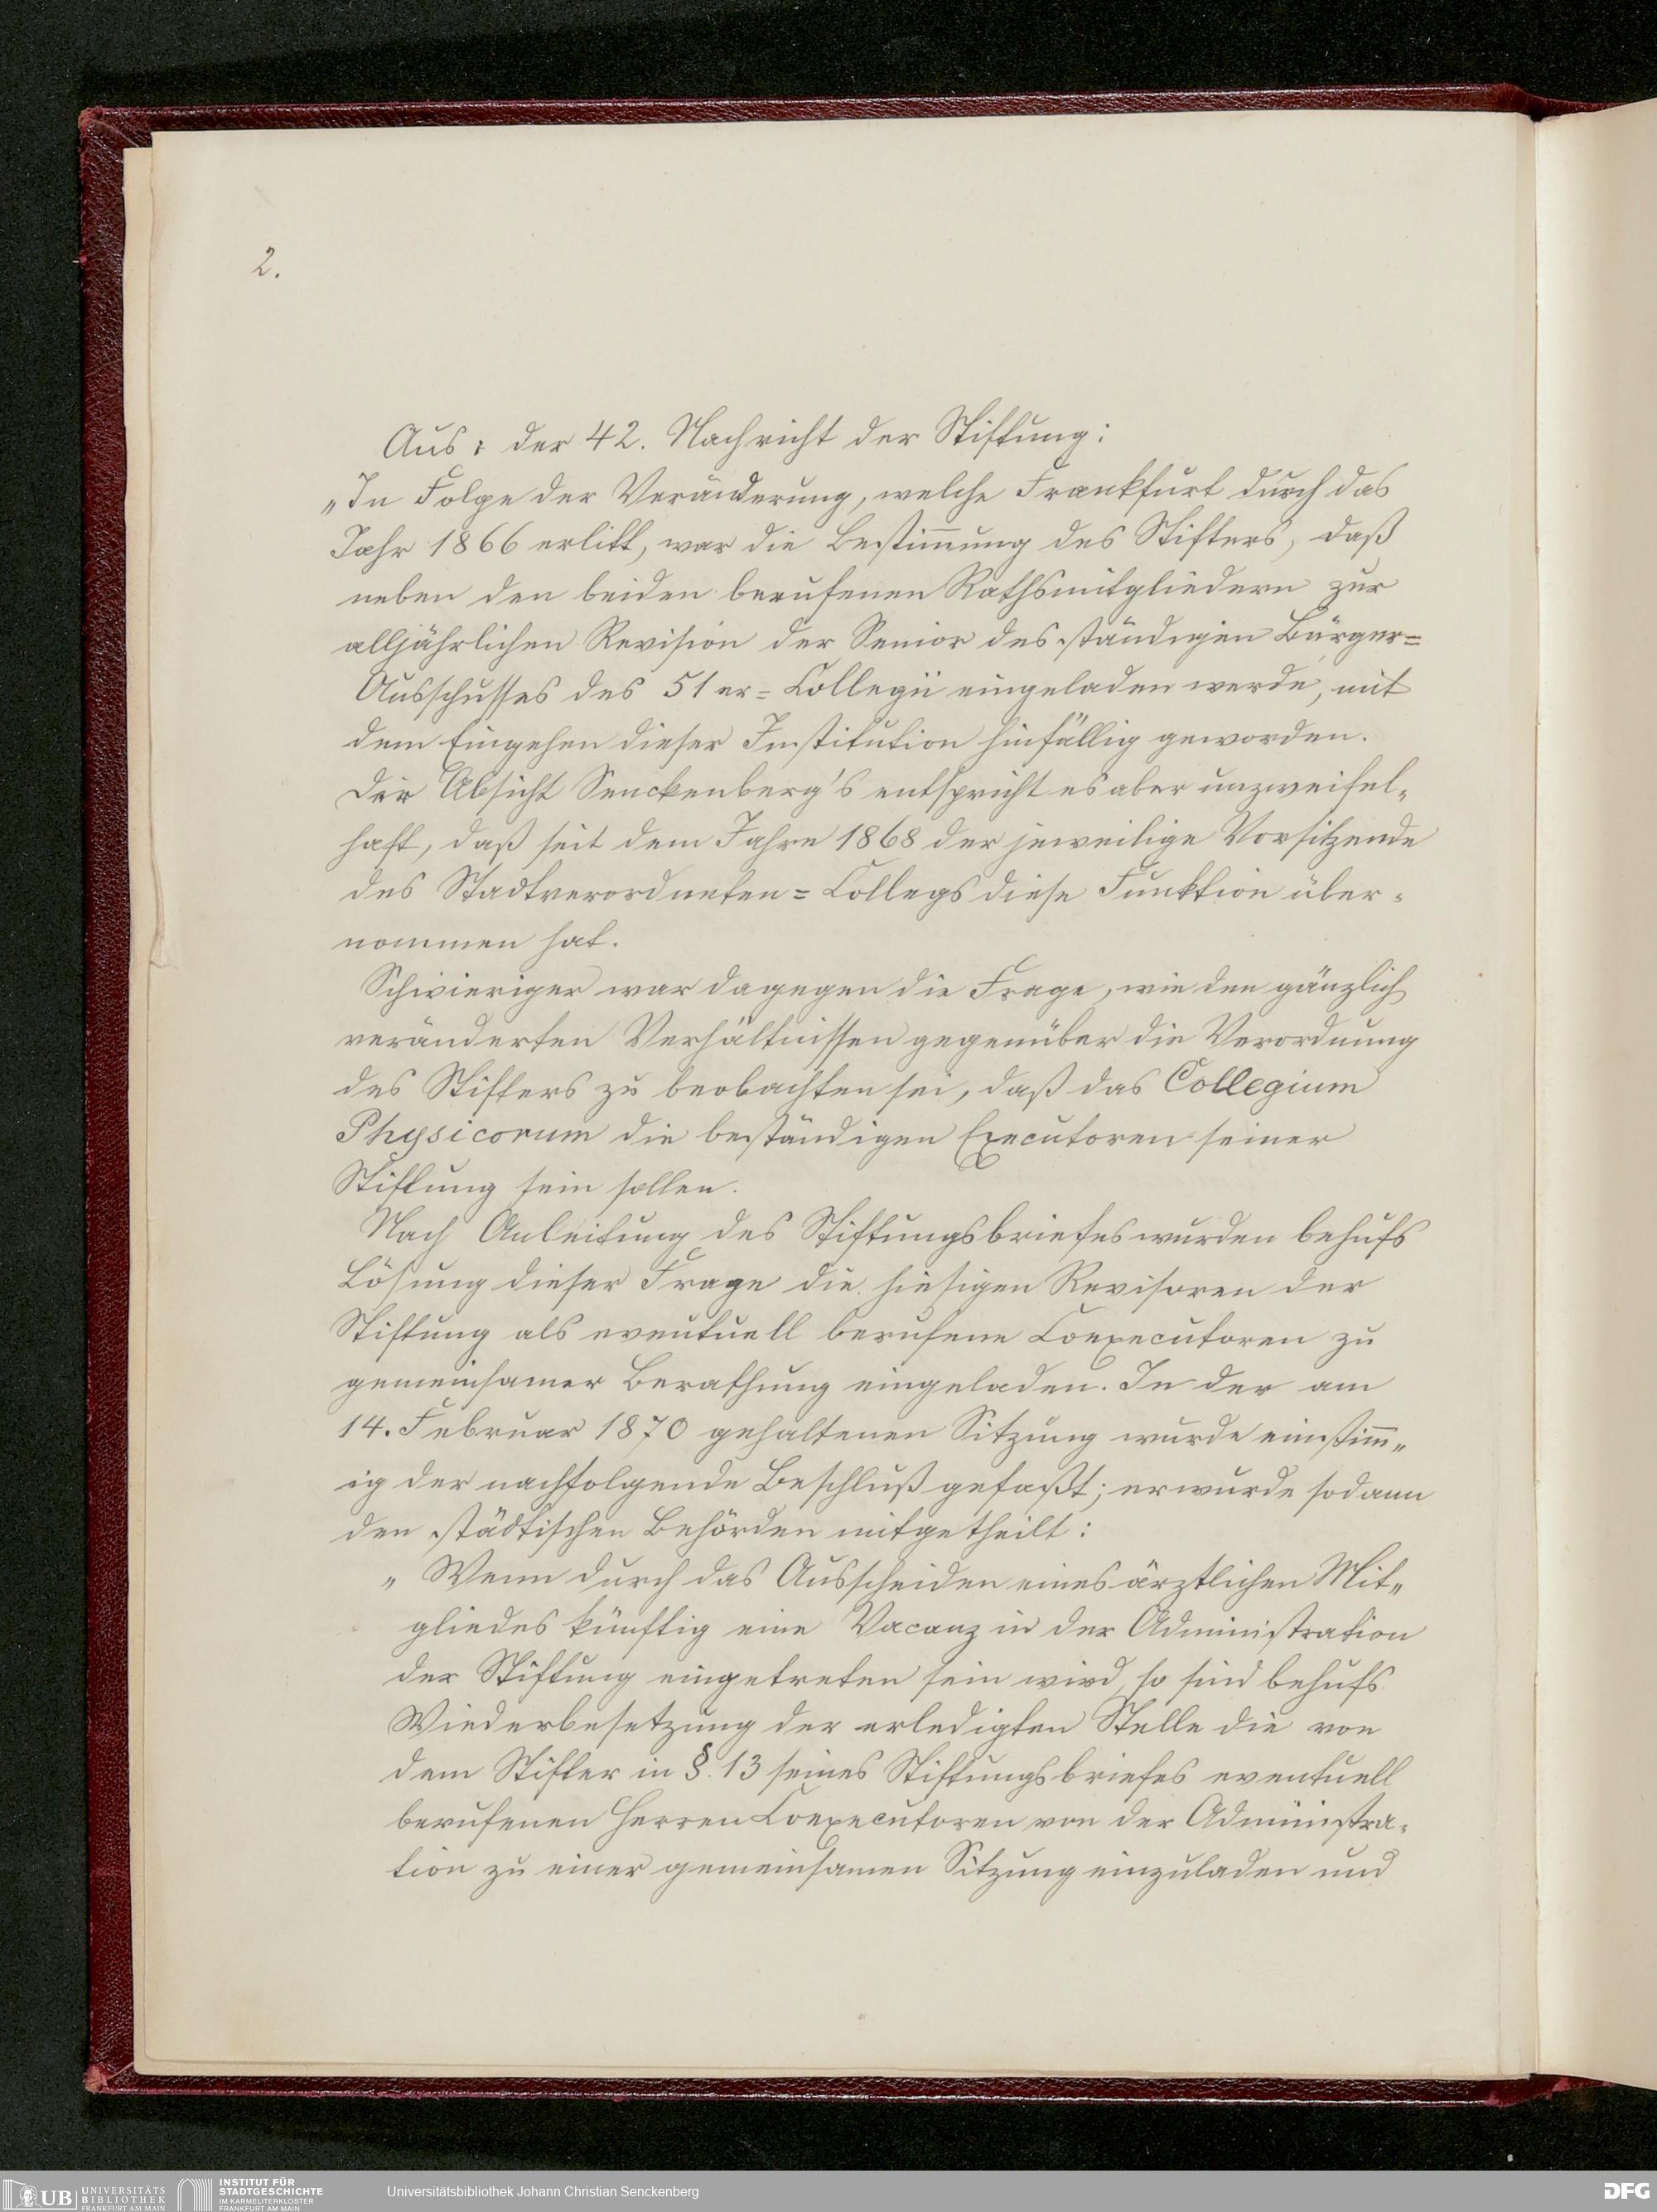 2.
Aus: der 42. Nachricht der Stiftung:
„In Folge der Veränderung, welche Frankfurt durch das
Jahr 1866 erlitt, war die Bestim̄ung des Stifters, daß
neben den beiden berufenen Rathsmitgliedern zur
alljährlichen Revision der Senior des ständigen Bürger=
Ausschusses des 51er=Collegii eingeladen werde, mit
dem Eingehen dieser Institution hinfällig geworden.
Der Absicht Senckenberg's entspricht es aber unzweifel„
haft, daß seit dem Jahre 1868 der jeweilige Vorsitzende
des Stadtverordneten=Collegs diese Funktion über„
nommen hat.
Schwieriger war dagegen die Frage, wie den gänzlich
veränderten Verhältnissen gegenüber die Verordnung
des Stifters zu beobachten sei, daß das Collegium
Physicorum die beständigen Executoren seiner
Stiftung sein sollen.
Nach Anleitung des Stiftungsbriefes wurden behufs
Lösung dieser Frage die hiesigen Revisoren der
Stiftung als eventuell berufene Coexecutoren zu
gemeinsamer Berathung eingeladen. In der am
14. Februar 1870 gehaltenen Sitzung wurde einstim̄„
ig der nachfolgende Beschluß gefaßt; er wurde sodann
den städtischen Behörden mitgetheilt:
„Wenn durch das Ausscheiden eines ärztlichen Mit„
gliedes künftig eine Vacanz in der Administration
der Stiftung eingetreten sein wird, so sind behufs
Wiederbesetzung der erledigten Stelle die von
dem Stifter in §. 13 seines Stiftungsbriefes eventuell
berufenen Herren Coexecutoren von der Administra„
tion zu einer gemeinsamen Sitzung einzuladen und
UB UNIVERSITÄTS
BIBLIOTHEK
FRANKFURT AM MAIN
INSTITUT FÜR
STADTGESCHICHTE
IM KARMELITERKLOSTER
FRANKFURT AM MAIN
Universitätsbibliothek Johann Christian Senckenberg
DFG